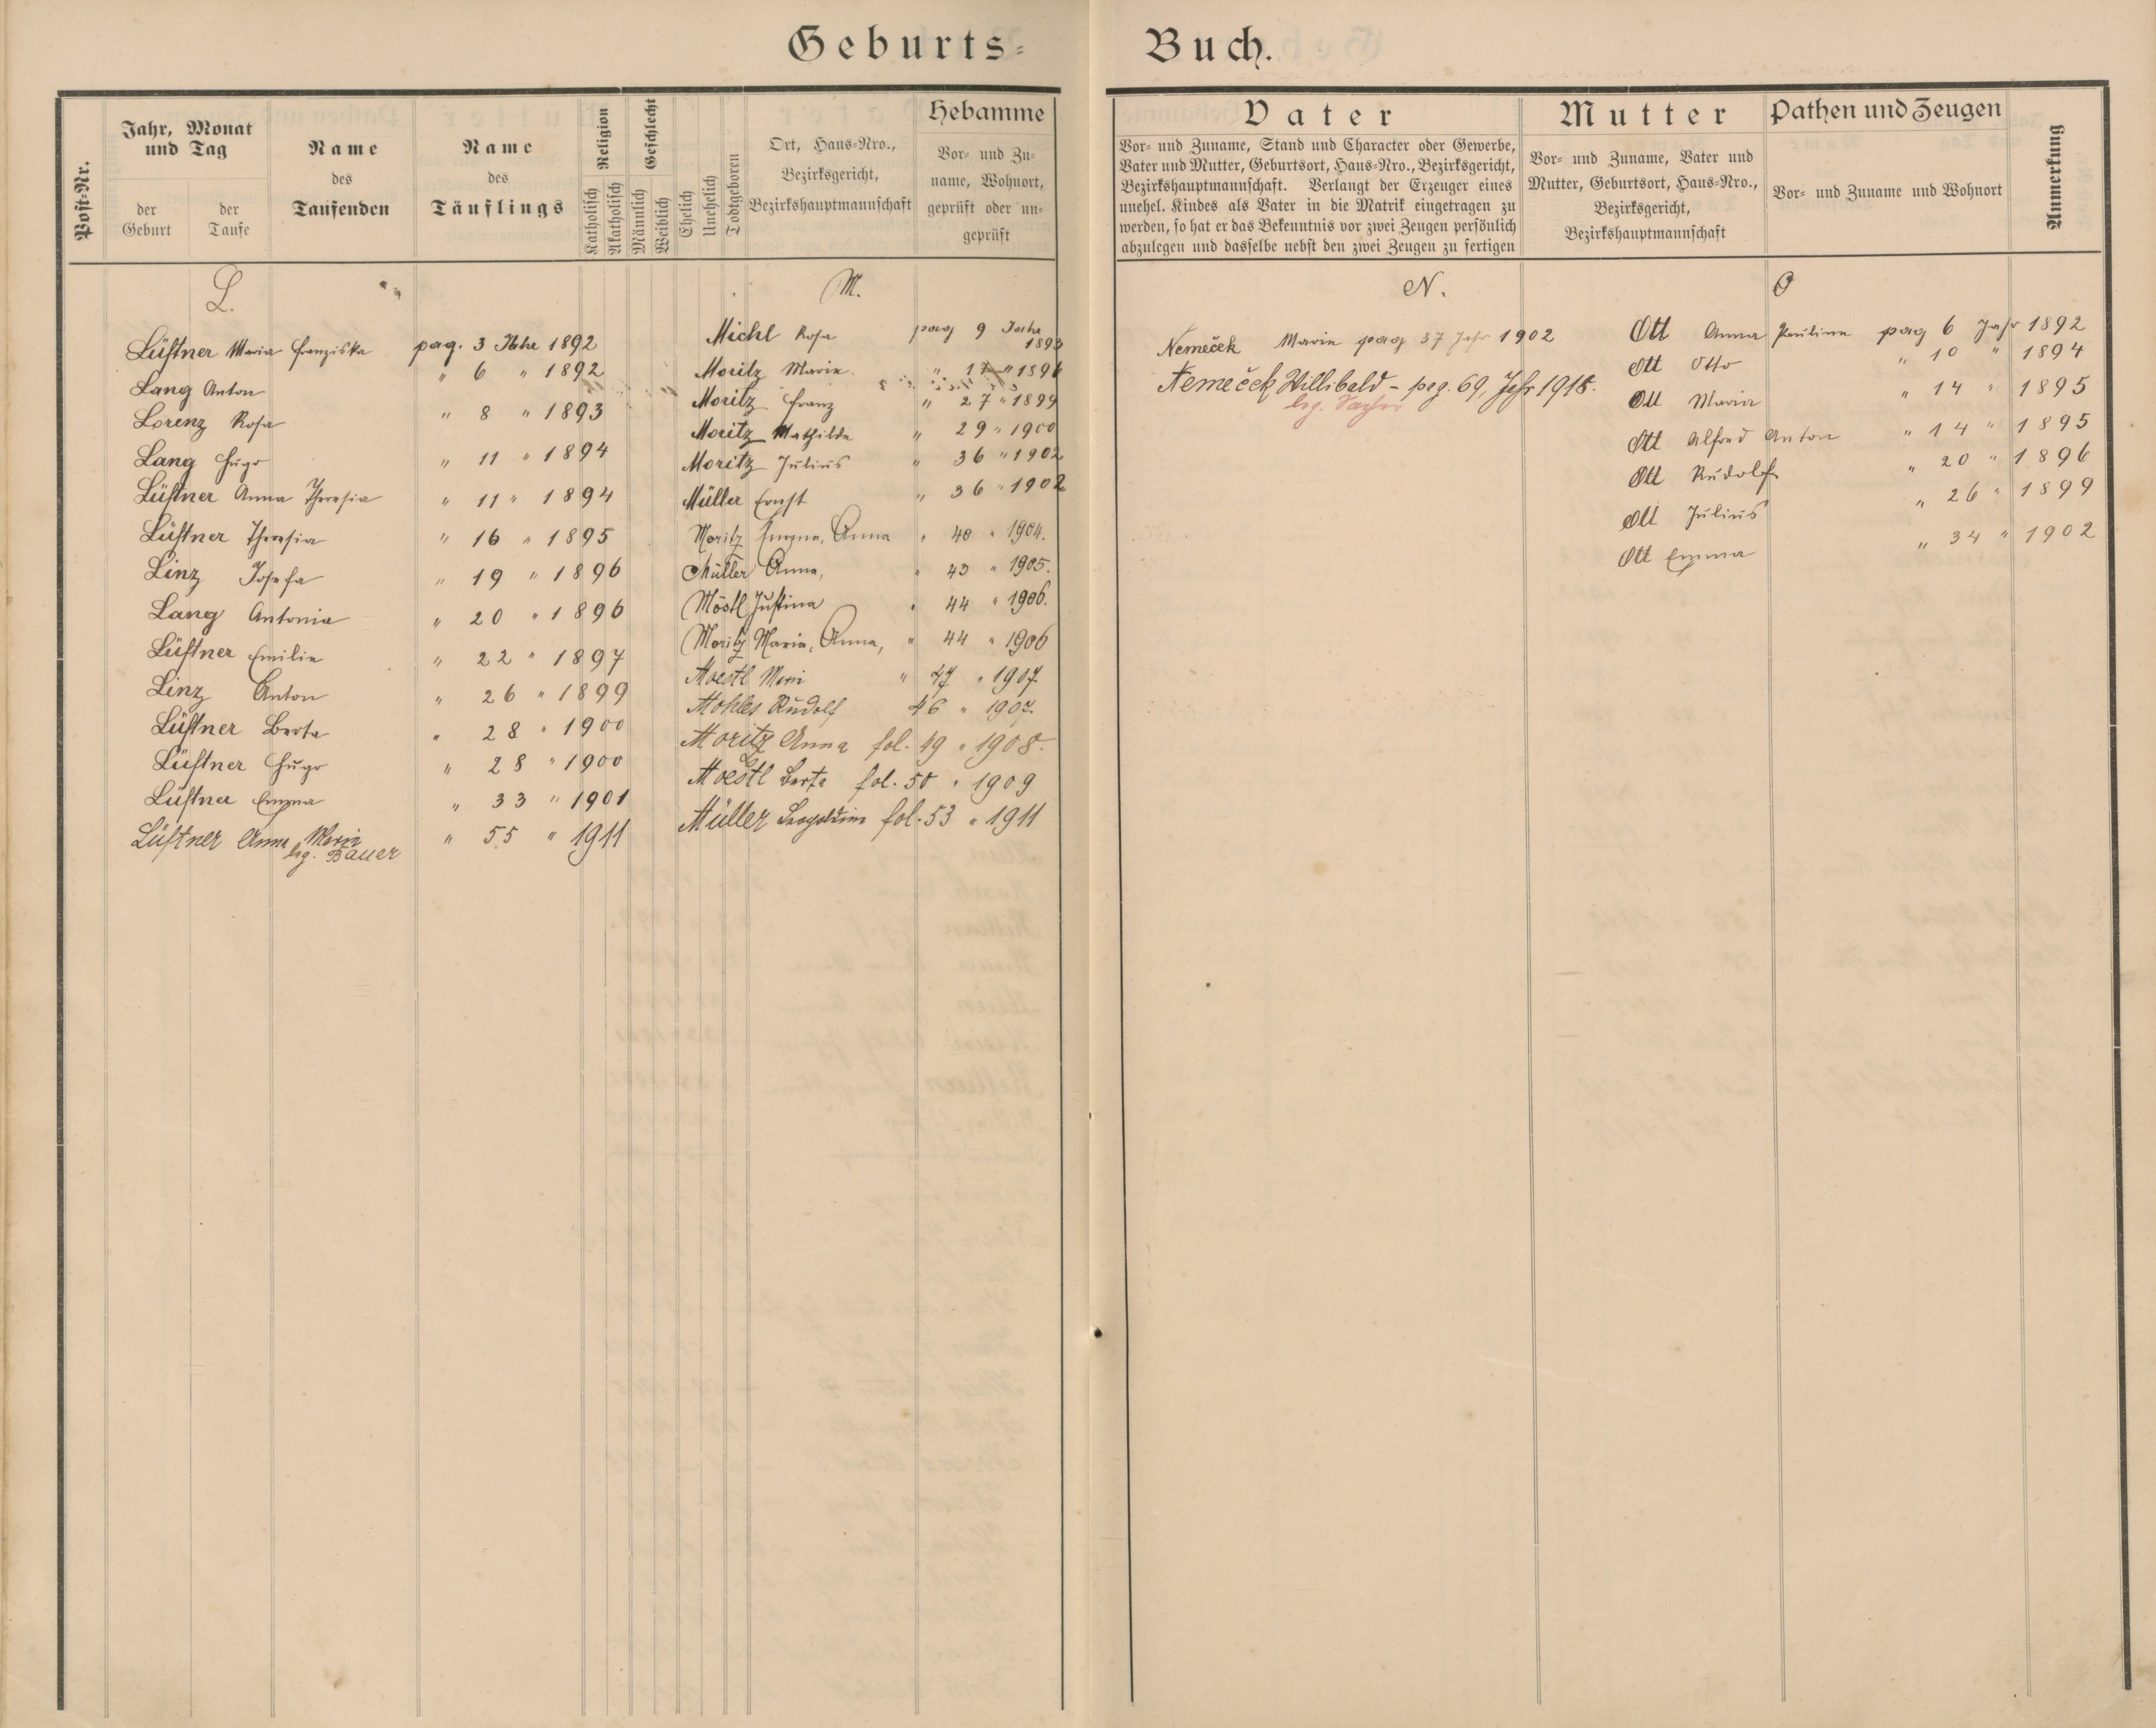 Geburts= Buch.
Post-Nr.
Jahr, Monat und Tag
der Geburt
der Taufe
Name des Taufenden
Name des Täuflings
Religion
Katholisch
Akatholisch
Geschlecht
Männlich
Weiblich
Ehelich
Unehelich
Todtgeboren
Ort, Haus-Nro.,
Bezirksgericht,
Bezirkshauptmannschaft
Hebamme
Vor- und Zu-
name, Wohnort,
geprüft oder un-
geprüft
Vater
Vor- und Zuname, Stand und Character oder Gewerbe,
Vater und Mutter, Geburtsort, Haus-Nro., Bezirksgericht,
Bezirkshauptmannschaft. Verlangt der Erzeuger eines
unehel. Kindes als Vater in die Matrik eingetragen zu
werden, so hat er das Bekenntnis vor zwei Zeugen persönlich
abzulegen und dasselbe nebst den zwei Zeugen zu fertigen
Mutter
Vor- und Zuname, Vater und
Mutter, Geburtsort, Haus-Nro.,
Bezirksgericht,
Bezirkshauptmannschaft
Pathen und Zeugen
Vor- und Zuname und Wohnort
Anmerkung
L.
Lüftner Maria Franziska pag. 3 Jahr 1892
Lang Anton " 6 " 1892
Lorenz Rosa " 8 " 1893
Lang Hugo " 11 " 1894
Lüftner Anna Theresia " 11 " 1894
Lüftner Theresia " 16 " 1895
Linz Josefa " 19 " 1896
Lang Antonia " 20 " 1896
Lüftner Emilie " 22 " 1897
Linz Anton " 26 " 1899
Lüftner Berta " 28 " 1900
Lüftner Hugo " 28 " 1900
Lüftner Emma " 33 " 1901
Lüftner Anna Maria " 55 " 1911
leg. Bauer
M.
Michl Rosa pag 9 Jahr 1893
Moritz Marie " 17 " 1896
Moritz Franz " 27 " 1899
Moritz Mathilde " 29 " 1900
Moritz Julius " 36 " 1902
Müller Ernst " 36 " 1902
Moritz Emma, Anna " 40 " 1904.
Müller Anna, " 43 " 1905.
Möstl Justina " 44 " 1906.
Moritz Maria, Anna, " 44 " 1906
Moestl Marie " 47 " 1907
Mohles Rudolf 46 " 1907.
Moritz Anna fol. 49 " 1908.
Moestl Berta fol. 50 " 1909
Müller Leopoldine fol. 53 " 1911
N.
Nemeček Marie pag 37 Jahr 1902
Nemeček Willibald - pag. 69, Jahr 1918.
leg.
O
Ott Anna Pauline pag 6 Jahr 1892
Ott Otto " 10 " 1894
Ott Maria " 14 " 1895
Ott Alfred Anton " 14 " 1895
Ott Rudolf " 20 " 1896
Ott Julius " 26 " 1899
Ott Emma " 34 " 1902